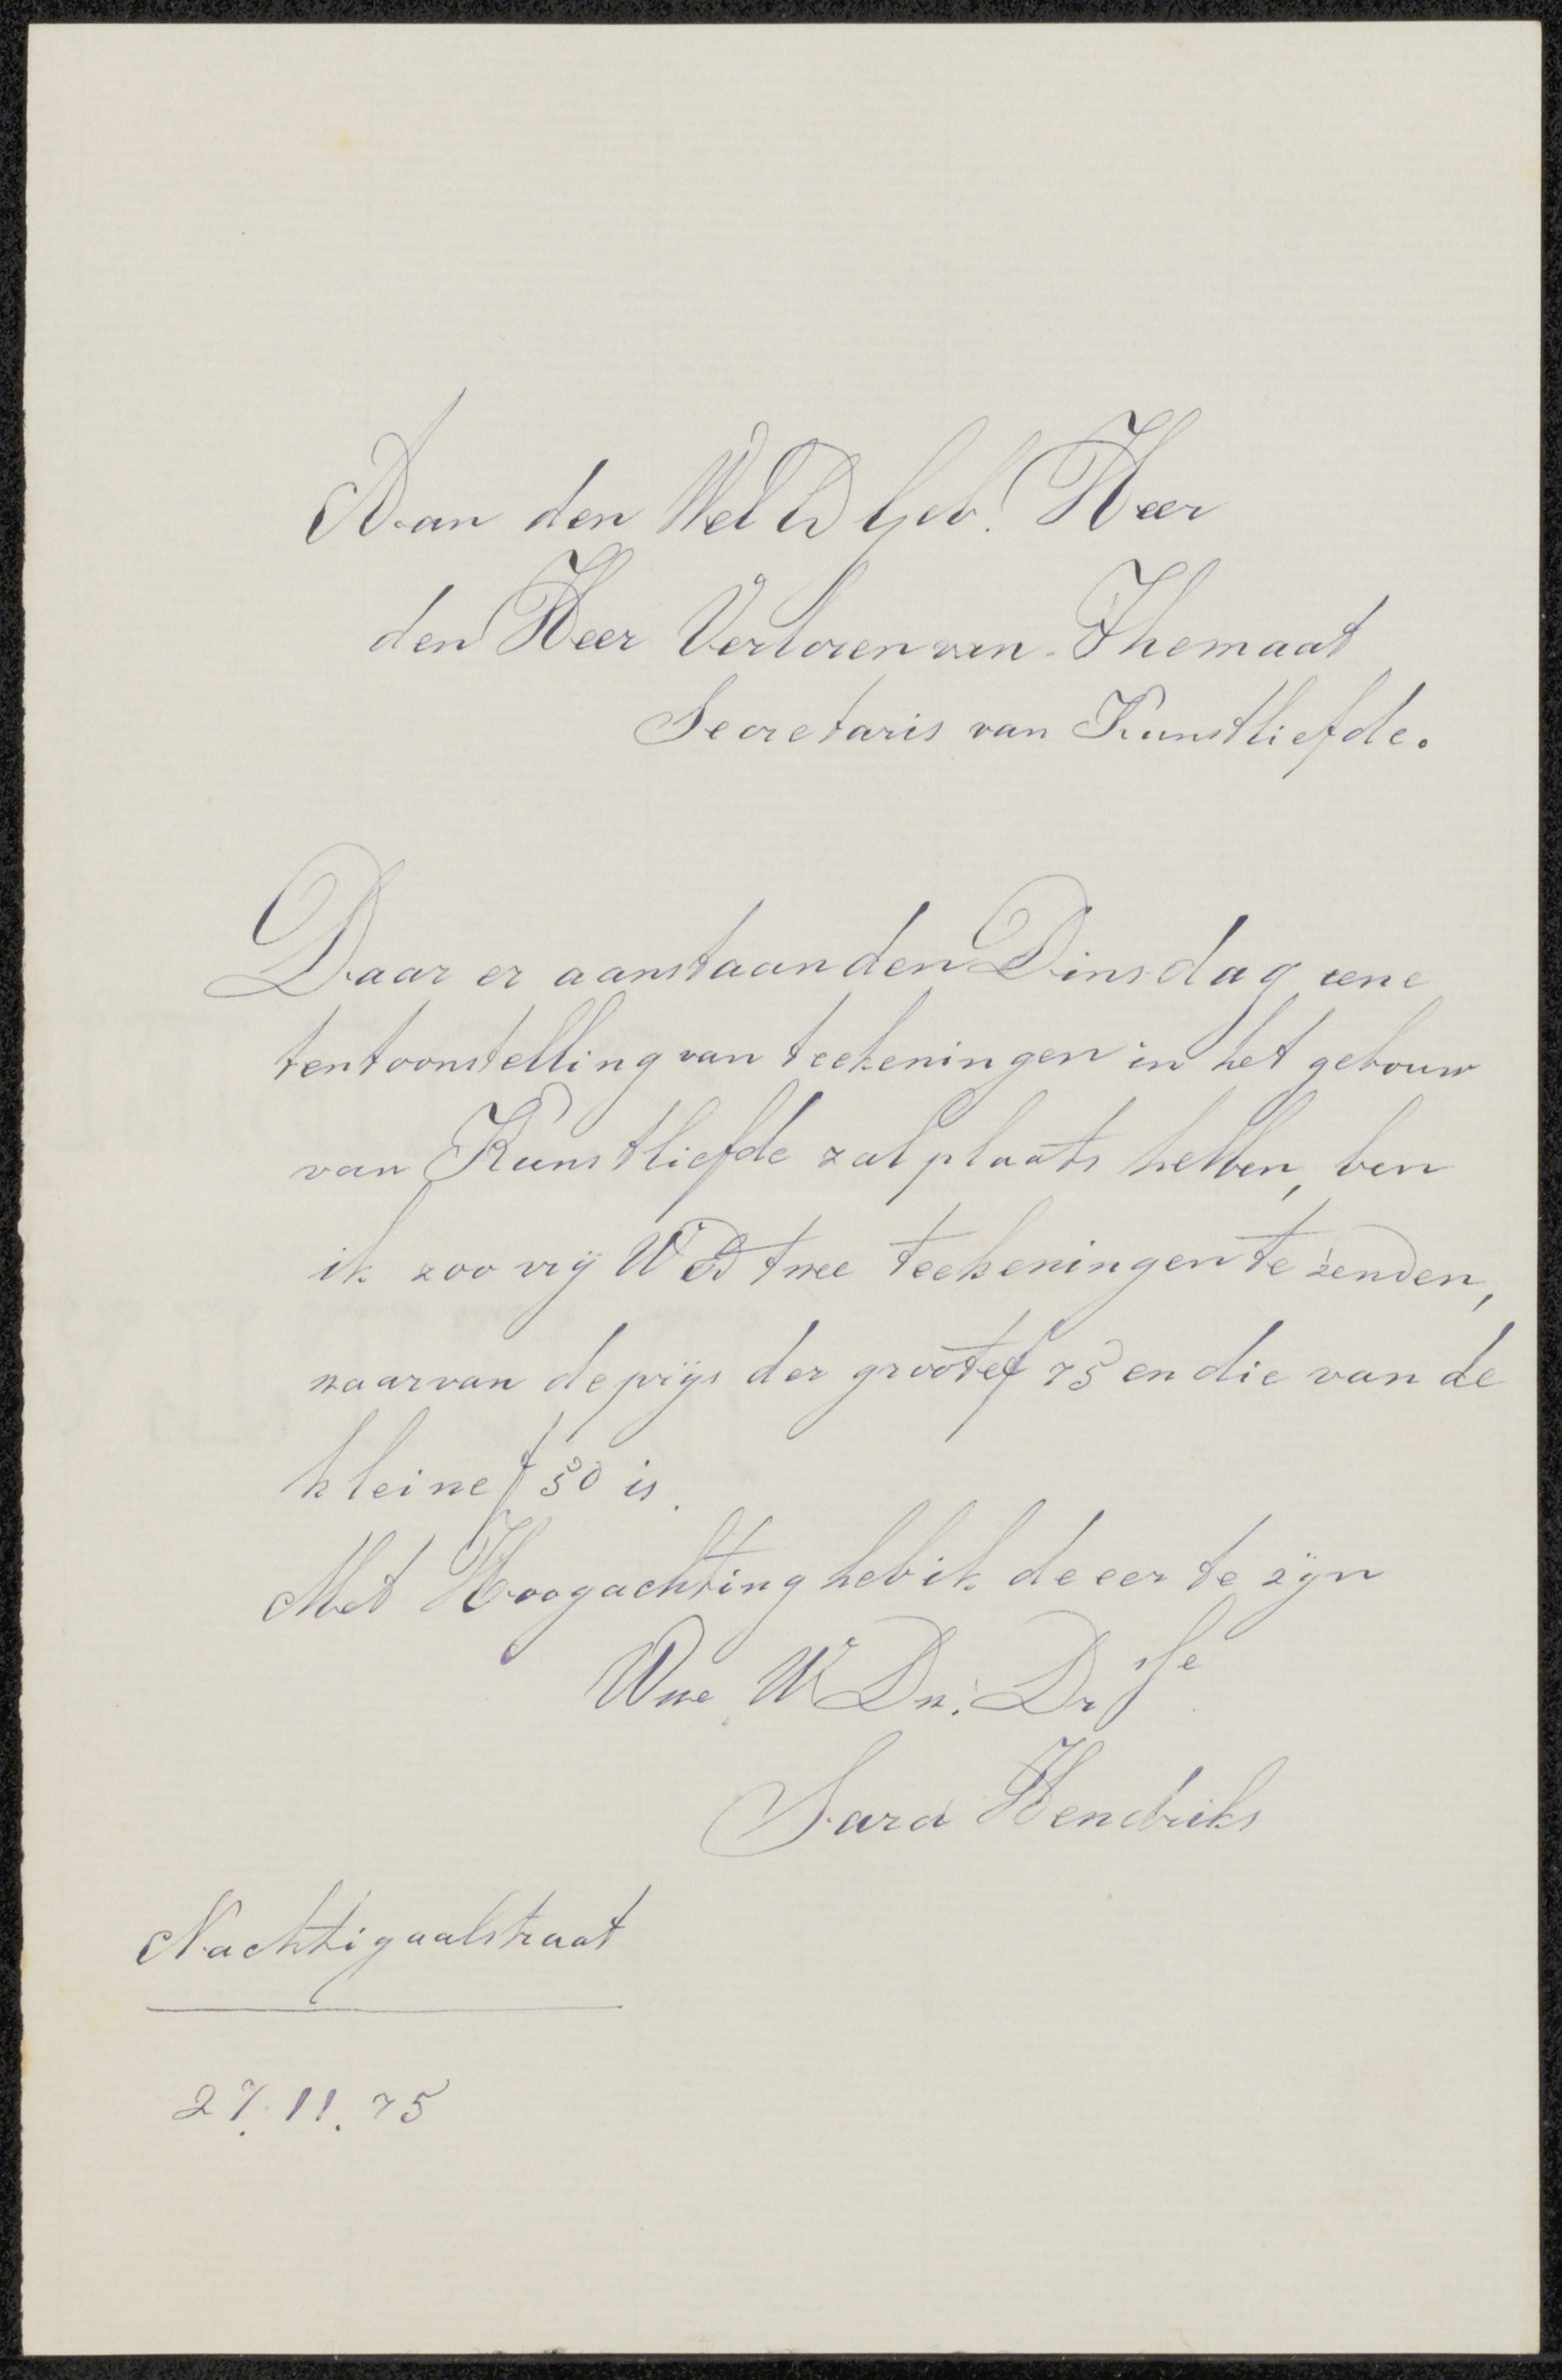 Aan den Wel Ed Geb. Heer
den Heer Verloren van Themaat
Secretaris van Kunstliefde.
Daar er aanstaanden Dinsdag eene
tentoonstelling van teekeningen in het gebouw
van Kunstliefde zal plaats hebben, ben
ik zoo vrij UEd twee teekeningen te zenden,
waarvan de prijs der groote f 75 en die van de
kleine f 50 is.
Met Hoogachting heb ik de eer te zijn
Uwe W Dn. Dr
Sara Hendriks
Nachtigaalstraat
27.11.75